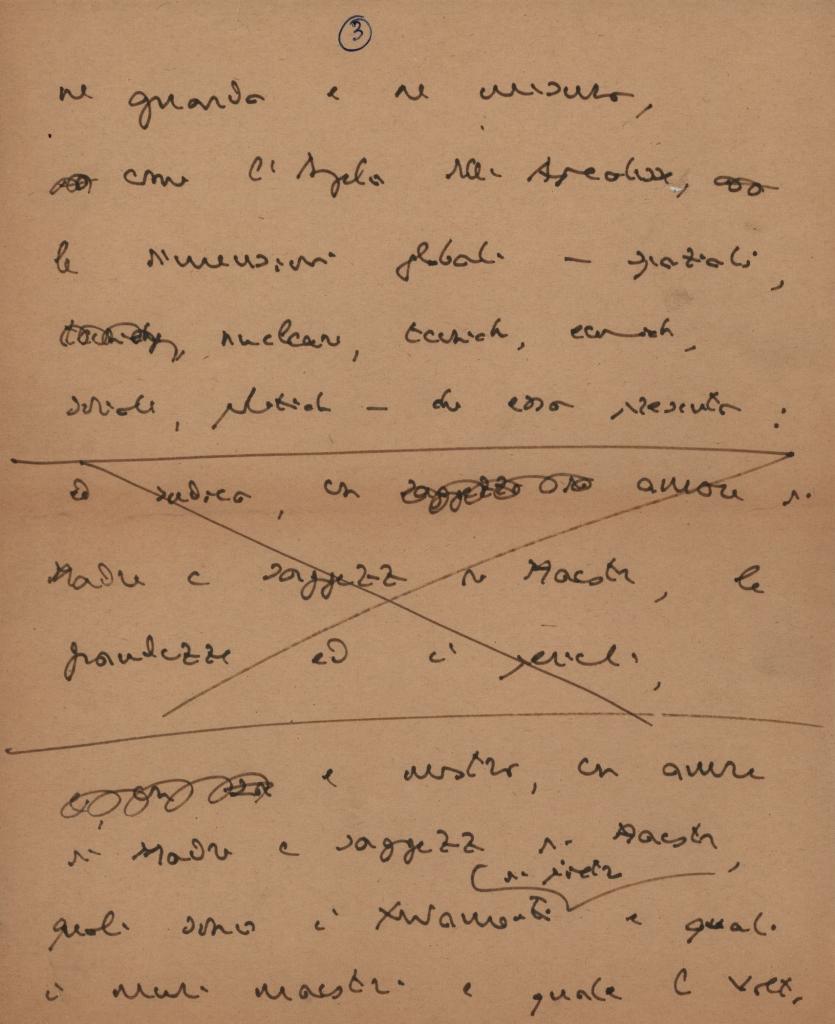 3
ne guarda e ne misura,
come l'Angelo dell'Apocalisse,
le dimensioni globali – spaziali,
nucleari, tecniche, economiche,
sociali, politiche – che essa presenta:
ed indica, con saggezza amore di
Madre e saggezza di Maestra, le
grandezze ed i pericoli,
e mostra, con amore
di Madre e saggezza di Maestra,
di pietra
quali sono i fondamenti e quali
i muri maestri e quale la volta,